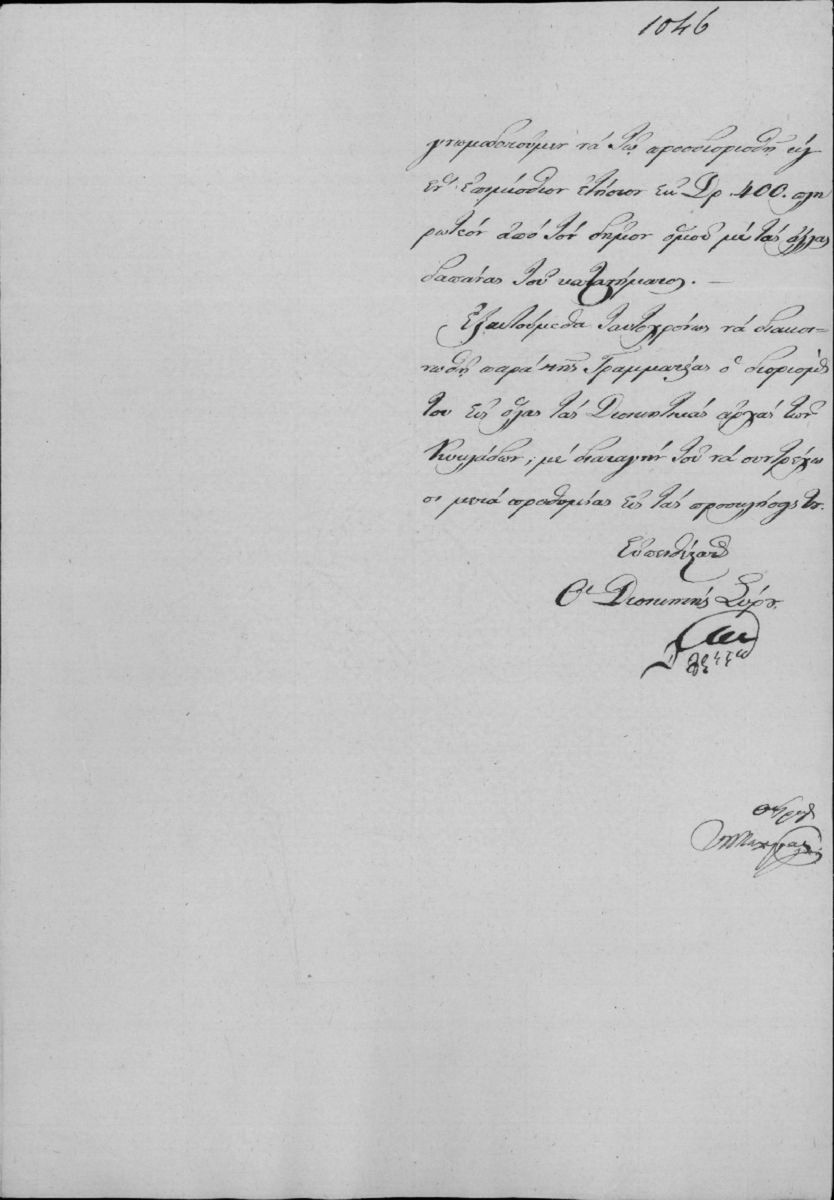 1046
γνωμοδοτούμεν νά τῷ προσδιορισθῇ εἰς
ἐν ἐπιμίσθιον ἐτήσιον ἐκ Δρ. 400. πλη
ρωτέον ἀπό τόν δῆμον ὁμοῦ μέ τάς ἄλλας
δαπάνας τοῦ καταστήματος. —
Ἐξαιτούμεθα ταυτοχρόνως νά διακοι-
νωθῇ παρά τῆς Γραμματείας ὁ διορισμός
του εἰς ὅλας τάς Διοικητικάς ἀρχάς τῶν
Κυκλάδων, μέ διαταγήν τοῦ νά συντρέχω
σι μετά προθυμίας εἰς τάς προσκλήσεις του.
Εὐπειθέστατος
Ὁ Διοικητής Σύρου